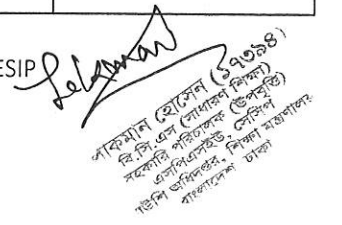 ESIP
(১৭৩৯৪)
হোসেন
বি.সি.এস (সাধারণ শিক্ষা)
সহকারি পরিচালক (উপবৃত্তি)
এসপিএসইউ, সেসিপ
অধিদপ্তর, শিক্ষা মন্ত্রণালয়
বাংলাদেশ ঢাকা